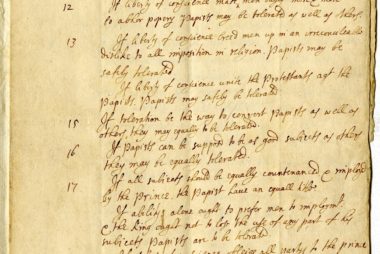 12 If liberty of conscience make men
to abhor popery Papists may be tolerated as well as others.
13 If liberty of conscience breed men up in an irreconcileable
dislike to all imposition in religion Papists may be
safely tolerated
If liberty of conscience unite the Protestants agt the
Papists, Papists may safely be tolerated
15 If toleration be the way to convert Papists as well as
others, they may equally be tolerated.
16 If Papists can be supposd to be as good subjects as others
they may be equally tolerated.
17 If all subjects should be equally countenanced & imploid
by the Prince, the Papist have an equall title
If abilitys alone ought to prefer men to imploymt
& the King ought not to lose the use of any part of his
subjects Papists are to be tolerated
all party to the prince